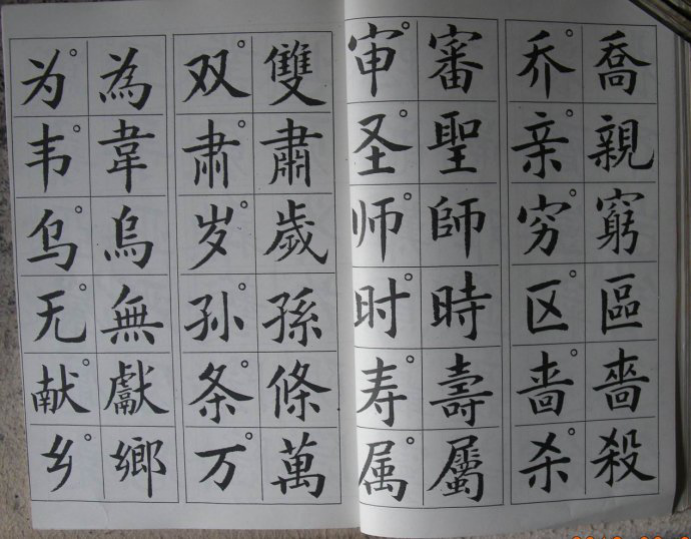 喬親窮區嗇殺
乔亲穷区啬杀
審聖師時壽屬
审圣师时寿属
雙肅歲孫條萬
双肃岁孙条万
為韋烏無獻鄉
为韦乌无献乡